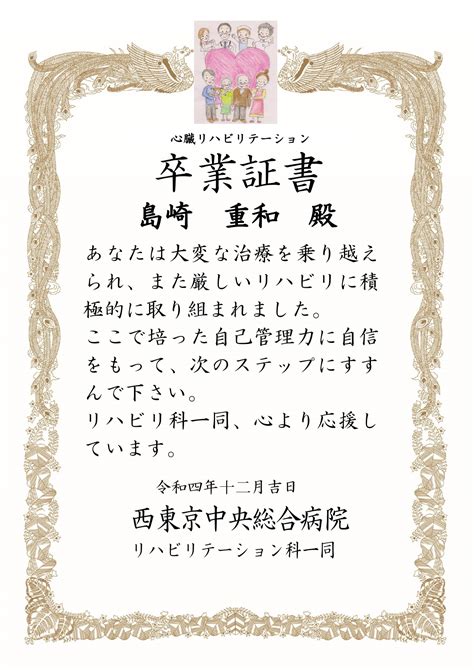 心臓リハビリテーション
卒業証書
島崎　重和　殿
あなたは大変な治療を乗り越え
られ、また厳しいリハビリに積
極的に取り組まれました。
ここで培った自己管理力に自信
をもって、次のステップにすす
んで下さい。
リハビリ科一同、心より応援し
ています。
令和四年十二月吉日
西東京中央総合病院
リハビリテーション科一同